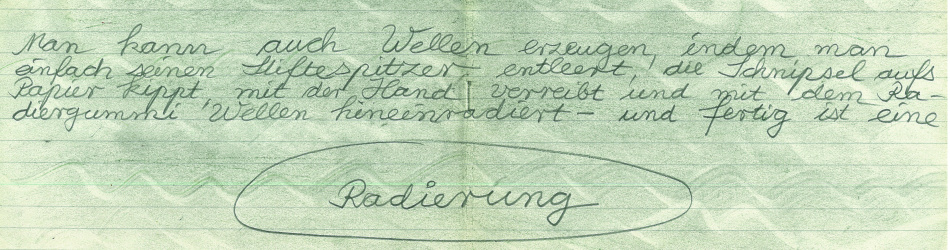 Man kann auch Wellen erzeugen, indem man
einfach seinen Stiftespitzer entleert, die Schnipsel aufs
Papier kippt, mit der Hand verreibt und mit dem Ra-
diergummi Wellen hineinradiert – und fertig ist eine
Radierung